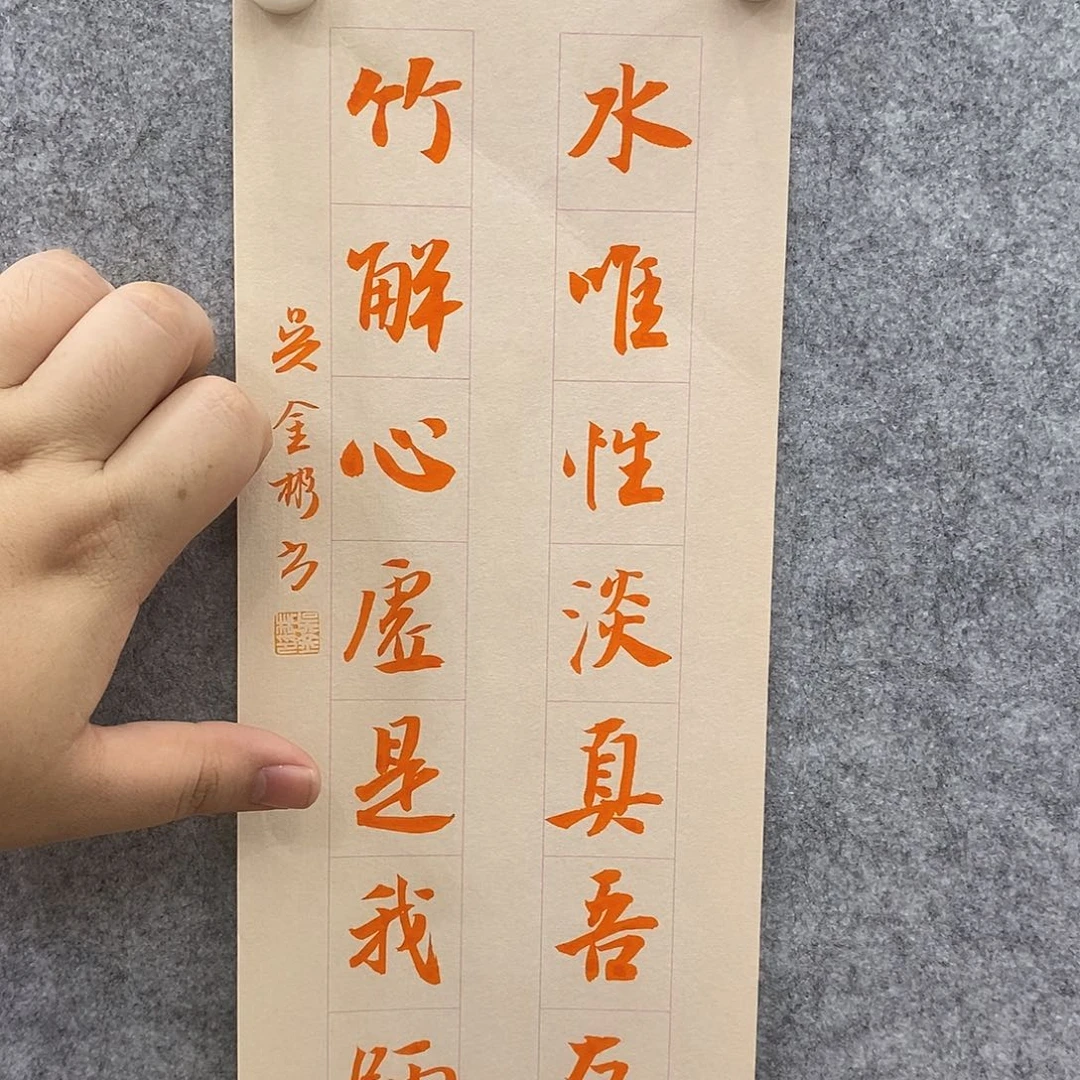 水唯性淡真吾友
竹解心虚是我師
吳金彬书